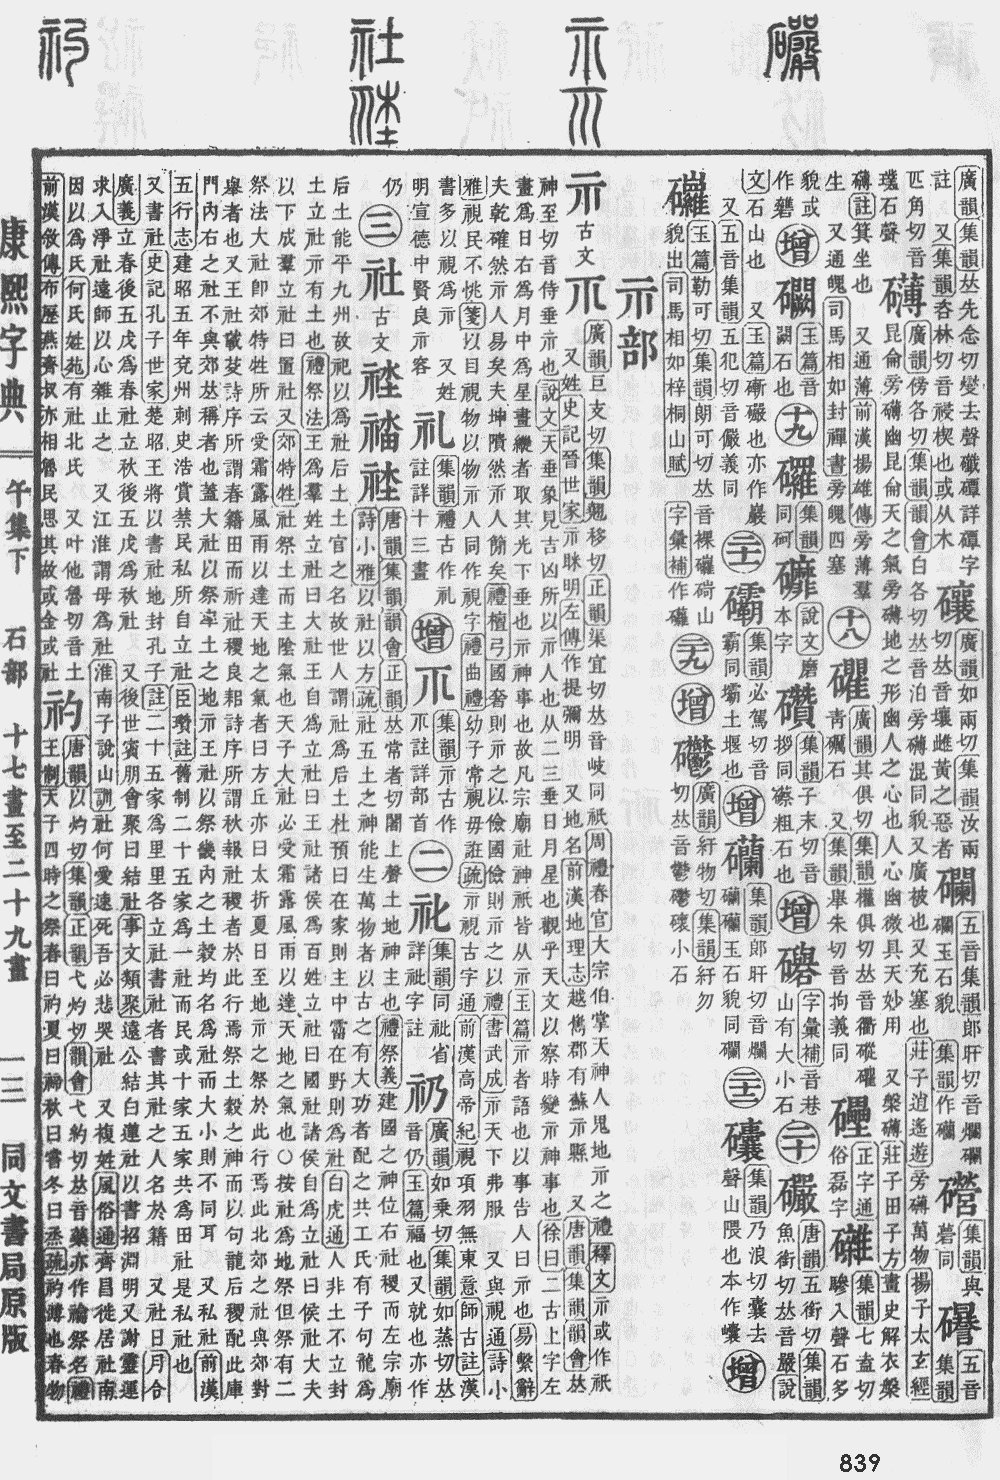 康熙字典
午集下 石部 十七畫至二十九畫
一三
同文書局原版
廣韻集韻𠀤先念切燮去聲磩磹詳磹字
註 又集韻咨林切音祲楔也或从木
礦 廣韻如兩切集韻汝兩
切𠀤音壤雌黃之惡者
五音集韻郎旰切音爛
玉石貌
集韻作
集韻與
礐同
五音
集韻
匹角切音
璞石聲
礴 廣韻傍各切集韻韻會白各切𠀤音泊旁礴混同貌又廣被也又充塞也莊子逍遙遊旁礴萬物揚子太玄經
昆侖旁礴幽昆侖天之氣旁礴地之形幽人之心也人心幽微具天妙用 又槃礴莊子田子方畫史解衣槃
礴註箕坐也 又通薄前漢揚雄傳旁薄羣
生 又通魄司馬相如封禪書旁魄四塞
十八
礭 廣韻其俱切集韻權俱切𠀤音衢礭
靑礪石 又集韻舉朱切音拘義同
正字通
俗磊字
集韻七盍切
㟥入聲石多
貌或
作礬
增 玉篇音
闢石也
十九
集韻
同砢
礳 說文磨
本字
集韻子末切音
拶同䃰粗石也
增 字彙補音巷
山有大小石
二十
礹 唐韻五銜切集韻
魚銜切𠀤音嚴說
文石山也 又玉篇嶃礹也亦作巖
又五音集韻五犯切音儼義同
二十一
集韻必駕切音
霸同壩土堰也
增 集韻郎旰切音爛
玉石貌同
二十二
集韻乃浪切囊去
聲山隈也本作㶞
增
玉篇勒可切集韻朗可切𠀤音裸
貌出司馬相如梓桐山賦 字彙補作
二十九
增 廣韻紆物切集韻紆勿
切𠀤音鬱 小石
示部
示 古文
𥘅 廣韻巨支切集韻翹移切正韻渠宜切𠀤音岐同祇周禮春官大宗伯掌天神人鬼地示之禮釋文示或作祇
又姓史記晉世家示眯明左傳作提彌明 又地名前漢地理志越巂郡有蘇示縣 又唐韻集韻韻會𠀤
神至切音侍垂示也說文天垂象見吉凶所以示人也从二三垂日月星也觀乎天文以察時變示神事也徐曰二古上字左
畫爲日右爲月中爲星畫縱者取其光下垂也示神事也故凡宗廟社神祇皆从示玉篇示者語也以事告人曰示也易繫辭
夫乾確然示人易矣夫坤隤然示人簡矣禮檀弓國奢則示之以儉國儉則示之以禮書武成示天下弗服 又與視通詩小
雅視民不恌箋以目視物以物示人同作視字禮曲禮幼子常視毋誑疏示視古字通前漢高帝紀視項羽無東意師古註漢
書多以視爲示 又姓
明宣德中賢良示容
礼 集韻禮古作礼
註詳十三畫
增 𥘅 集韻示古作
𥘅註詳部首
二
祂 集韻同祂省
詳祂字註
礽 廣韻如乘切集韻如蒸切𠀤
音仍玉篇福也又就也亦作
仍
三
社 古文
唐韻集韻韻會正韻𠀤常者切闍上聲土地神主也禮祭義建國之神位右社稷而左宗廟
詩小雅以社以方疏社五土之神能生萬物者以古之有大功者配之共工氏有子句龍爲
后土能平九州故祀以爲社后土土官之名故世人謂社爲后土杜預曰在家則主中霤在野則爲社白虎通人非土不立封
土立社示有土也禮祭法王爲羣姓立社曰大社王自爲立社曰王社諸侯爲百姓立社曰國社諸侯自爲立社曰侯社大夫
以下成羣立社曰置社又郊特牲社祭土而主陰氣也天子大社必受霜露風雨以達天地之氣也○按社爲地祭但祭有二
祭法大社卽郊特牲所云受霜露風雨以達天地之氣者曰方丘亦曰太折夏日至地示之祭於此行焉此北郊之社與郊對
舉者也又王社載芟詩序所謂春籍田而祈社稷良耜詩序所謂秋報社稷者於此行焉祭土穀之神而以句龍后稷配此庫
門內右之社不與郊𠀤稱者也蓋大社以祭率土之地示王社以祭畿內之土穀均名爲社而大小則不同耳 又私社前漢
五行志建昭五年兗州刺史浩賞禁民私所自立社臣瓚註舊制二十五家爲一社而民或十家五家共爲田社是私社也
又書社史記孔子世家楚昭王將以書社地封孔子註二十五家爲里里各立社書社者書其社之人名於籍 又社日月令
廣義立春後五戊爲春社立秋後五戊爲秋社 又後世賓朋會聚曰結社事文類聚遠公結白蓮社以書招淵明又謝靈運
求入淨社遠師以心雜止之 又江淮謂母爲社淮南子說山訓社何愛速死吾必悲哭社 又複姓風俗通齊昌徙居社南
因以爲氏何氏姓苑有社北氏 又叶他魯切音土
前漢敘傳布歷燕齊叔亦相魯民思其故或金或社
礿 唐韻以灼切集韻正韻弋灼切韻會弋約切𠀤音藥亦作禴祭名禮
王制天子四時之祭春曰礿夏曰禘秋曰嘗冬曰烝疏礿薄也春物
839